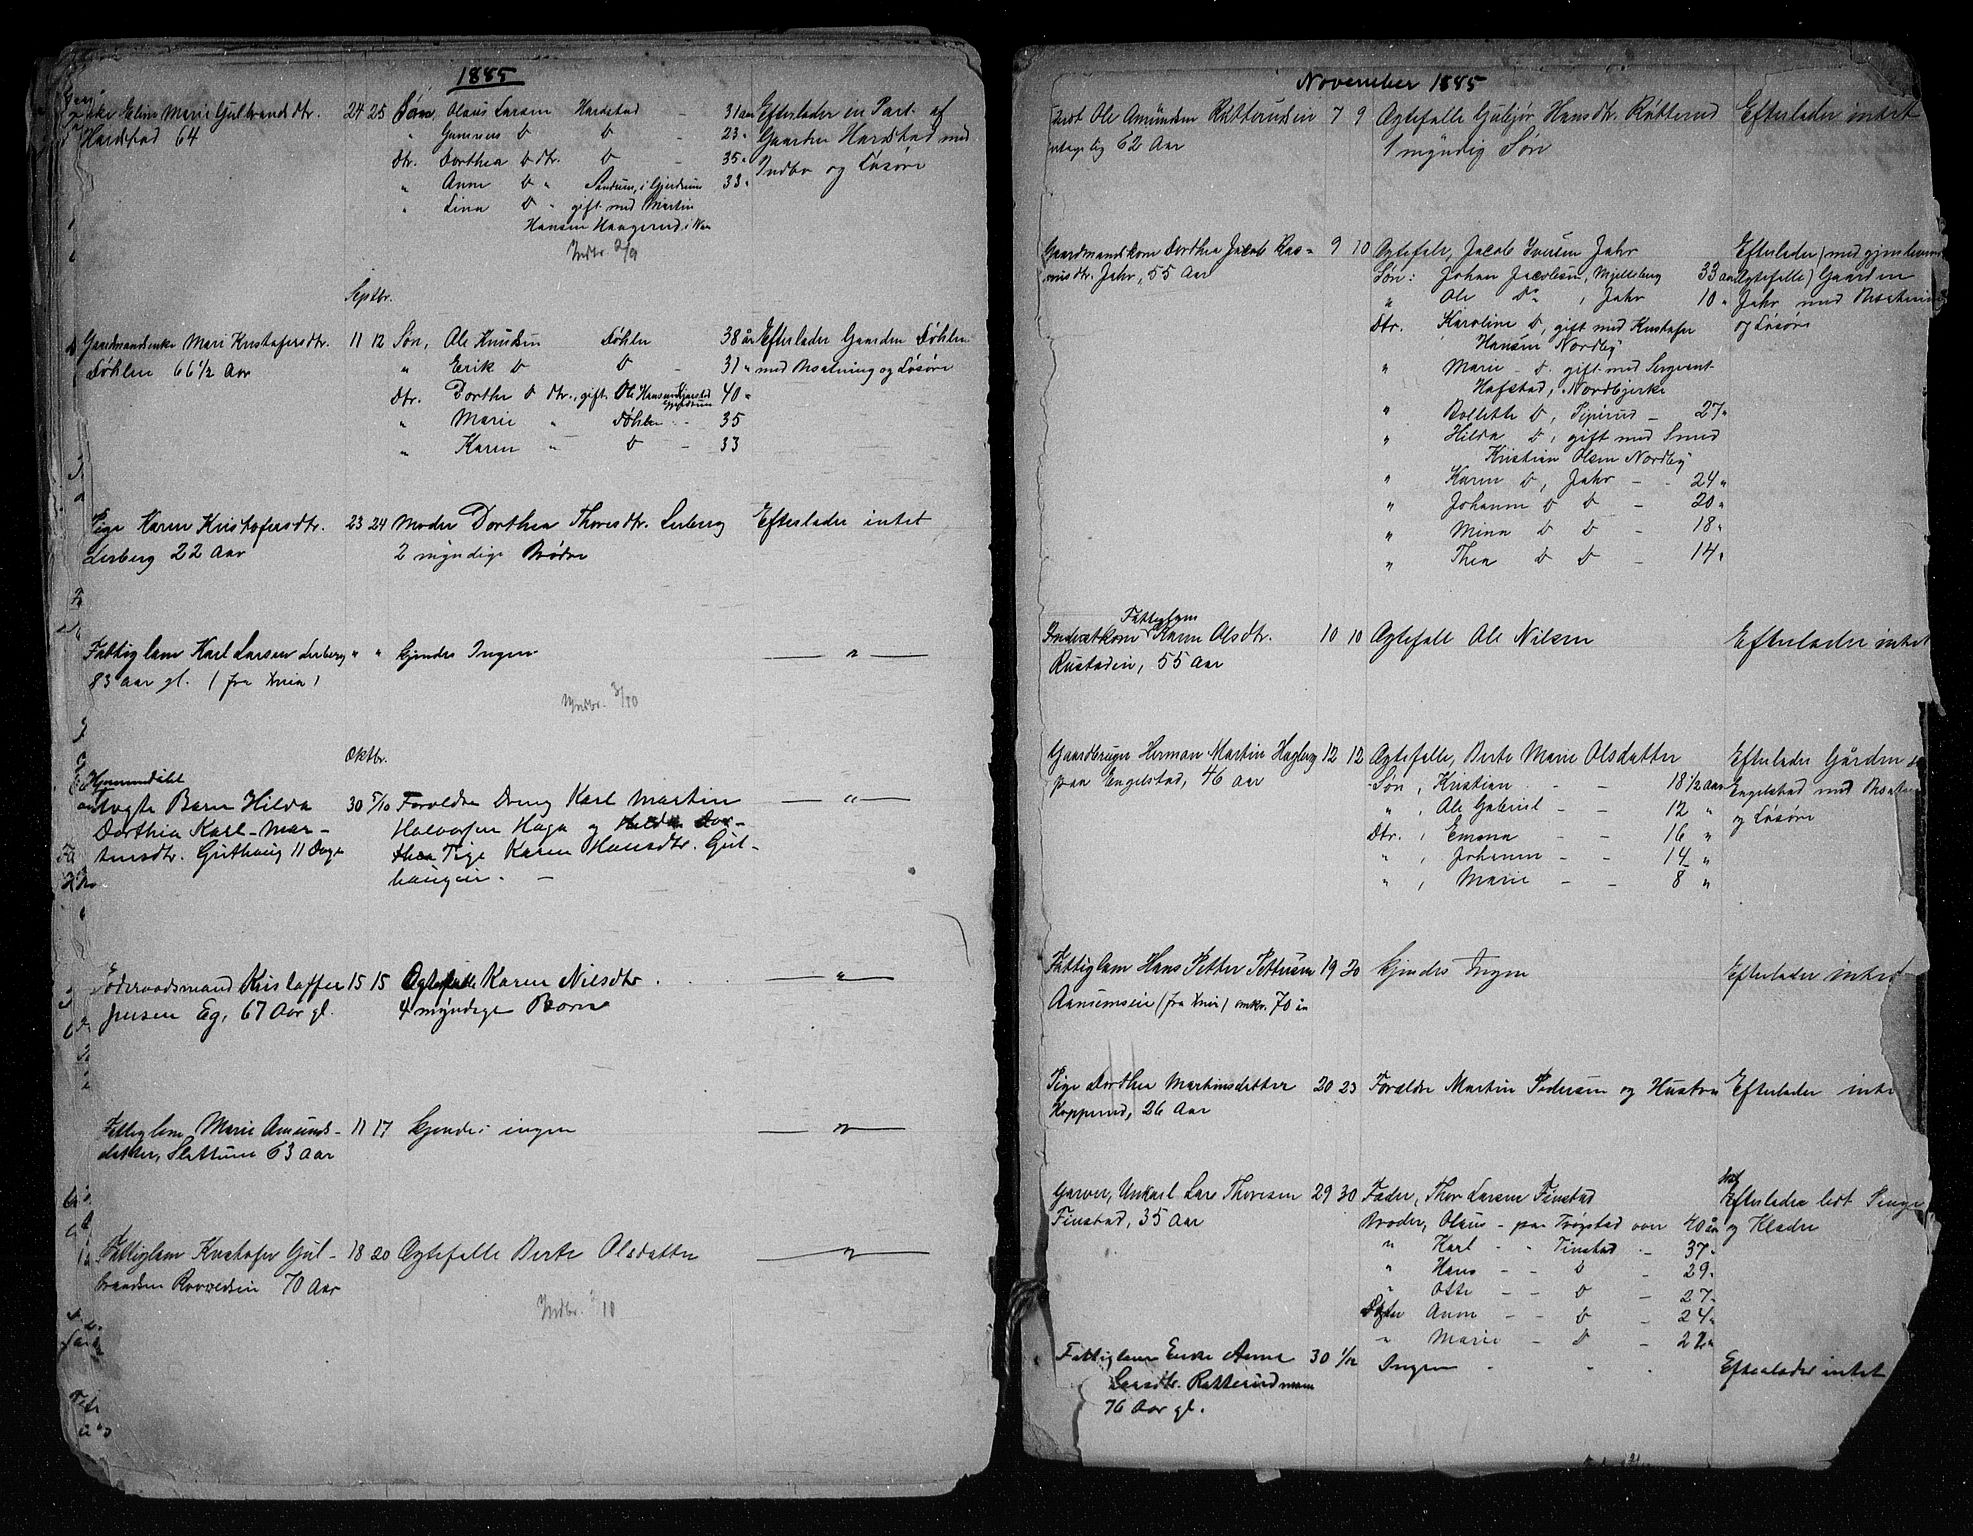 1885
Enke Elen Marie Gulbrandsdtr. 24 25 Søn, Olaus Larsen Hardstad - 31 aar Efterlader en Part. af
Hardstad 64 " Gunerius D D - 23 " Gaarden Hardstad med
dtr. Dorthea D dtr. D - 35 " Indbo og Løsøre
" Anne D " Sandum, i Gjerdrum 33 "
" Lina D " gift med Martin
Hansen Haagerud i Nan
Indbr. 2/9
Septbr.
Gaardmandsenke Mari Kristofersdtr. 11 12 Søn, Ole Knudsen Døhlen 38 år Efterlader Gaarden Døhlen
Døhlen 66 1/2 Aar " Erik D D - 31 " med Besætning og Løsøre
dtr. Dorthe D dtr., gift. Ole Hansen Gjerdrum 40 "
" Marie " Døhlen - 35
" Karen " D - 33
Pige Karen Kristofersdtr. 23 24 Moder Dorthea Thoresdtr. Lerberg Efterlader intet
Lerberg 22 Aar 2 myndige Brødre
Fattiglem Karl Larsen Lerberg " " Kjendes Ingen — " —
83 aar gl. (fra Xnia)
Indbr. 3/10
Oktbr.
Uægte Barn Hilda 30 5/10 Foreldre Dreng Karl Martin — " —
Dorthia Karl-Mar- Halvorsen Haga og
tinsdtr. Guthaug 11 Dage Pige Karen Hansdtr. Gul-
haugen. —
Føderaadsmand Kristaffer 15 15 Ægtefælle Karen Nilsdtr. — " —
Jensen Eg, 67 Aar gl. 4 myndige Børn
Fattiglem Marie Amunds- 11 17 Kjendes ingen — " —
datter, Slettum 63 Aar
Fattiglem Kristofer Gul- 18 20 Ægtefælle Berte Olsdatter — " —
brandsen 70 Aar
Indbr. 2/10
November 1885
Ole Amundsen Ratterudsen 7 9 Ægtefælle Gulbjør Hansdtr. Røtterud Efterlader intet
62 Aar 1 myndig Søn
Gaardmandskone Dorthea Jacob Ras- 9 10 Ægtefælle, Jacob Iversen Jahr Efterlader (med gjenlevende
musdtr. Jahr, 55 Aar Søn: Johan Jacobsen, Mjellsberg 33 aar Ægtefælle) Gaarden
" Ole Do , Jahr 10 " Jahr med Besætning
Dtr. Karoline D, gift med Kristofer og Løsøre
Hansen Nordby
" Marie - D. gift med Sergeant
Hafstad, Nordbjerke
" Bollette D, Pipirud - 27 "
" Hilda D, gift med Smed
Kristian Olsen Nordby
" Karen D, Jahr - - 24 "
" Johanne D D - 20 "
" Mina D D - 18 "
" Thea D D - 14 "
Fattiglem
Inderstkone Karen Olsdtr. 10 10 Ægtefælle Ole Nilsen Efterlader intet
Rustadeie, 55 Aar
Gaardbruger Herman Martin Hagberg 12 12 Ægtefælle, Berte Marie Olsdatter Efterlader Gården
paa Engelstad, 46 aar Søn, Kristian - - 18 1/2 aar Engelstad med
" , Ole Gabriel - - 12 " og Løsøre
Dtr. , Emma - - 16 "
" , Johanne - - 14 "
" , Marie - - 8 "
Fattiglem Hans Petter Pettersen 19 20 Kjendes Ingen Efterlader intet
(fra Xnia) omkr. 70 år
Pige Dorthea Martinsdatter 20 23 Forældre Martin Pedersen og Hustru Efterlader inte
Kopperud, 26 Aar
Garver, Unkarl Lars Thoresen 29 30 Fader, Thor Larsen Finstad Efterlader lidt Penge
Finstad, 35 Aar Broder, Olaus - paa Trøgstad over 40 år og Klæder
" Karl - " Finstad - 37 "
" Hans - - D - 29 "
" Otto - - D - 27 "
Døtre Anne - - D - 24 "
" Marie - D - 22 "
Fattiglem Enke Anne 30 1/12 Ingen Efterlader intet
Larsdtr. Ratterud
76 Aar gl.